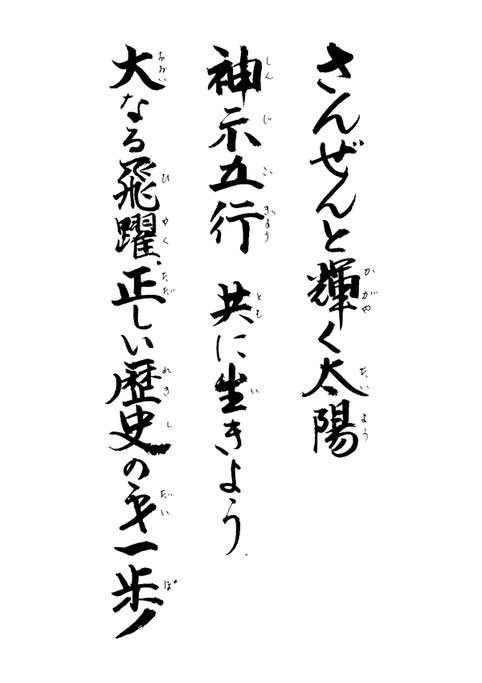 さんぜんと輝く太陽
神示五行　共に生きよう、
大なる飛躍、正しい歴史の第一歩